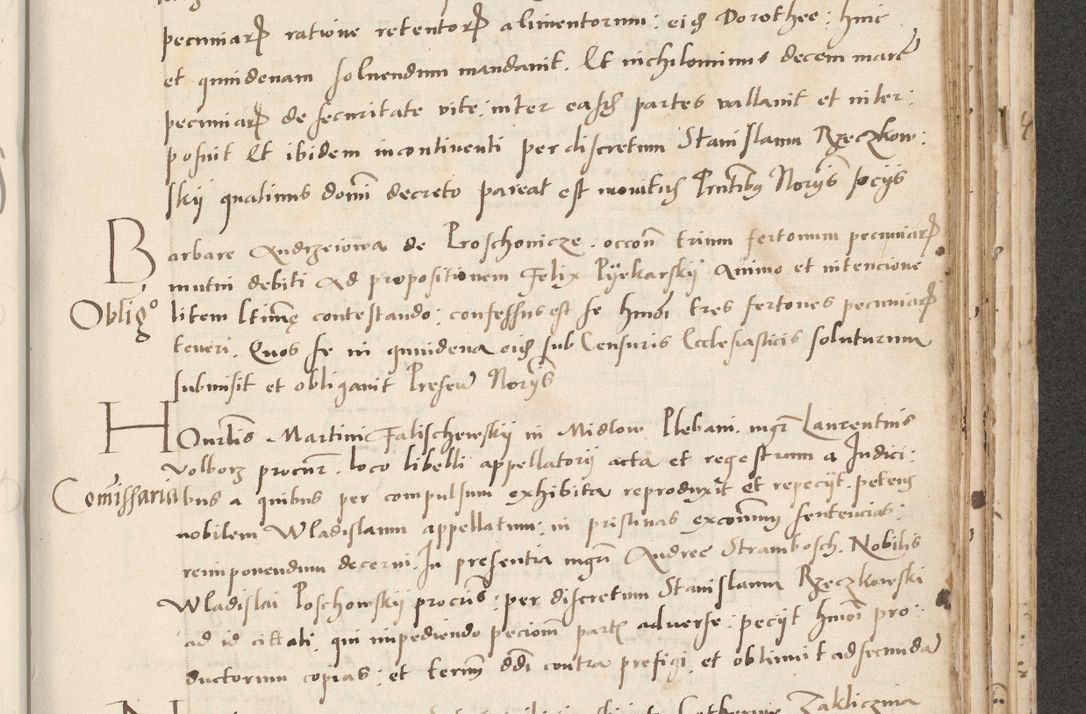 pecuniarꝝ ratione retentorꝝ alimentorum: eisdẽ Dorothee: hinc
et quindenam soluendum mandauit. Et nichilominus decem marcẽ
pecuniarꝝ de securitate vite: inter easdẽ partes vallauit et inter:
posuit Et ibidem incontinenti per discretum Stanislaum Rzeczkow:
skij quatinus domĩ decreto pareat est monitus Pñtibꝰ Norijs socijs
Barbare Andrzeiowa de Proschonicze. occoñ trium fertonum pecuniarꝝ
mutui debiti Ad propositionem Felix Pyekarskij Animo et intencione
Obligᵒ
litem Ltimẽ contestando: confessus est se hmõi tres fertones pecuniarꝝ
teneri. Quos se in quindena eisdẽ sub Censuris Ecclesiasticis soluturum
submisit et obligauit Presen Norijs
Honrabĩs Martini Falischewskij in Midlow Plebani. mgr̃ Laurentius
Volborz procur̃. loco libelli appellatorij acta et regestrum a Iudici:
Comissariis
bus a quibus per compulsum exhibita reproduxit et repecijt. petens
nobilem Wladislaum appellatum: in pristinas excommũs sentencias:
reimponendum decerni. In presentia mgrĩ Andree Strambosch. Nobilis
Wladislai Poschowskij procur̃is: per discretum Stanislaum Rzeczkowski
ad id cittati: qui impediendo peciom̃ partis aduerse: pecijt hmõi pro:
ductorum copias: et termĩ ddĩ contra presigi. et obtinuit ad secunda
Zaklicznia